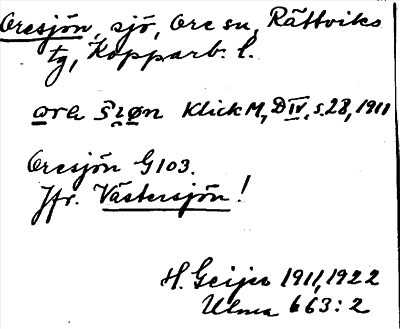 Oresjön, sjö, Ore sn, Rättviks
tg, Kopparb. l.
ore Klick M, D IV, s. 28, 1911
Oresjön G103.
Jfr. Västersjön!
H. Geijer 1911, 1922
Ulma 663:2